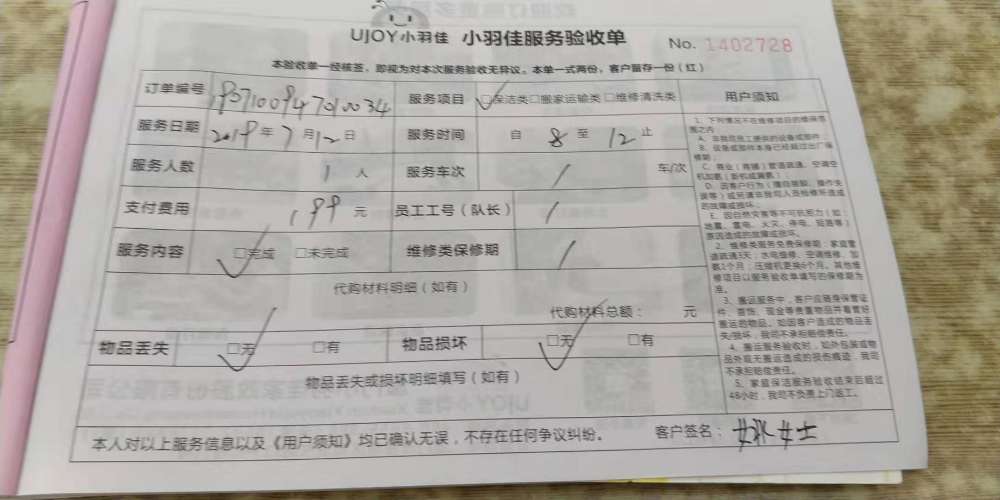 UJOY小羽佳 小羽佳服务验收单 No. 1402728
本验收单一经核签，即视为对本次服务验收无异议。本单一式两份，客户留存一份（红）
订单编号 服务项目 □保洁类□搬家运输类□维修清洗类 用户须知
服务日期 2019年7月12日 服务时间 自 8 至 12 止
服务人数 1 人 服务车次 / 车/次
支付费用 199 元 员工工号（队长） /
服务内容 □完成 □未完成 维修类保修期 /
代购材料明细（如有）
代购材料总额： 元
物品丢失 □无 □有 物品损坏 □无 □有
物品丢失或损坏明细填写（如有）
本人对以上服务信息以及《用户须知》均已确认无误，不存在任何争议纠纷。 客户签名： 女士
1、下列情况不在维修项目的维保范
围之内
A、非我司员工提供的设备或部件；
B、设备或部件本身已经超过出厂保
修期；
C、商业（商铺）管道疏通、空调空
机加氨（新机或漏氨）；
D、因客户行为（擅自拆卸、操作失
误等）或另请非我司人员检修所造成
的故障或损坏；
E、因自然灾害等不可抗拒力（如：
地震、雷电、火灾、停电、短路等）
原因造成的故障或损坏。
2、维修类服务免费保修期：家庭管
道疏通3天；水电维修、空调维修、加
氨1个月；压缩机更换6个月。其他维
修项目以服务验收单填写的保修期为
准。
3、搬运服务中，客户应随身保管证
件、首饰、现金等贵重物品并看管好
搬运的物品。如因客户造成的物品丢
失/毁坏，我司不承担赔偿责任。
4、搬运服务验收时，如外包装或物
品外观无搬运造成的损伤痕迹，我司
不承担赔偿责任。
5、家庭保洁服务验收结束后超过
48小时，我司不负责上门返工。